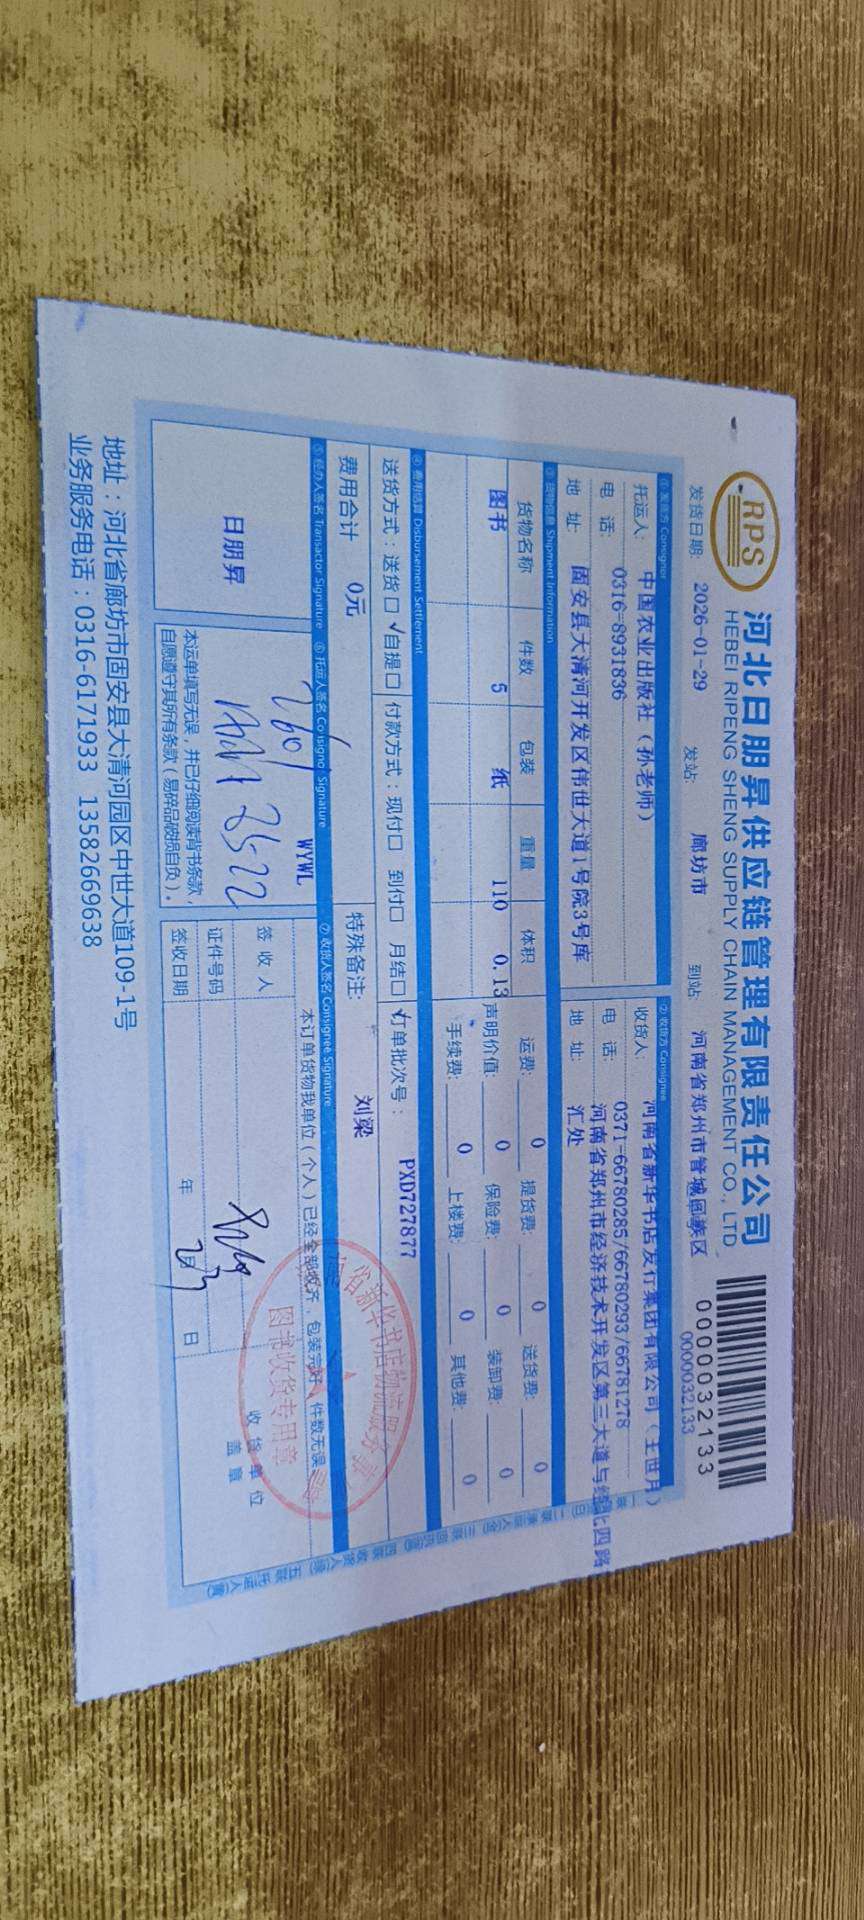 RPS
河北日朋昇供应链管理有限责任公司
HEBEI RIPENG SHENG SUPPLY CHAIN MANAGEMENT CO., LTD
0000032133
0000032133
发货日期: 2026-01-29 发站: 廊坊市 到站: 河南省郑州市管城回族区
① 发货方 Consigner ② 收货方 Consignee
托运人: 中国农业出版社（孙老师） 收货人: 河南省新华书店发行集团有限公司（王世月）
电 话: 0316-8931836 电 话: 0371-66780285/66780293/66781278
地 址: 固安县大清河开发区伟世大道1号院3号库 地 址: 河南省郑州市经济技术开发区第三大道与经北四路
汇处
③ 货物信息 Shipment Information
货物名称 件数 包装 重量 体积 运费: 0 提货费: 0 送货费: 0
图书 5 纸 110 0.13 声明价值: 0 保险费: 0 装卸费: 0
手续费: 0 上楼费: 0 其他费: 0
④ 费用结算 Disbursement Settlement
送货方式：送货□ √自提□ 付款方式：现付□ 到付□ 月结□ √订单批次号： PXD727877
费用合计 0元 特殊备注: 刘梁
⑤ 经办人签名 Transactor Signature ⑥ 托运人签名 Consignor Signature ⑦ 收货人签名 Consignee Signature
日朋昇
WYWL
本运单填写无误，并已仔细阅读背书条款，
自愿遵守其所有条款（易碎品破损自负）。
本订单货物我单位（个人）已经全部收齐，包装完好，件数无误
签 收 人
证件号码
签收日期 年 2月3日
收 货 单 位
盖 章
省新华书店物流服务
图书收货专用章
地址：河北省廊坊市固安县大清河园区中世大道109-1号
业务服务电话：0316-6171933 13582669638